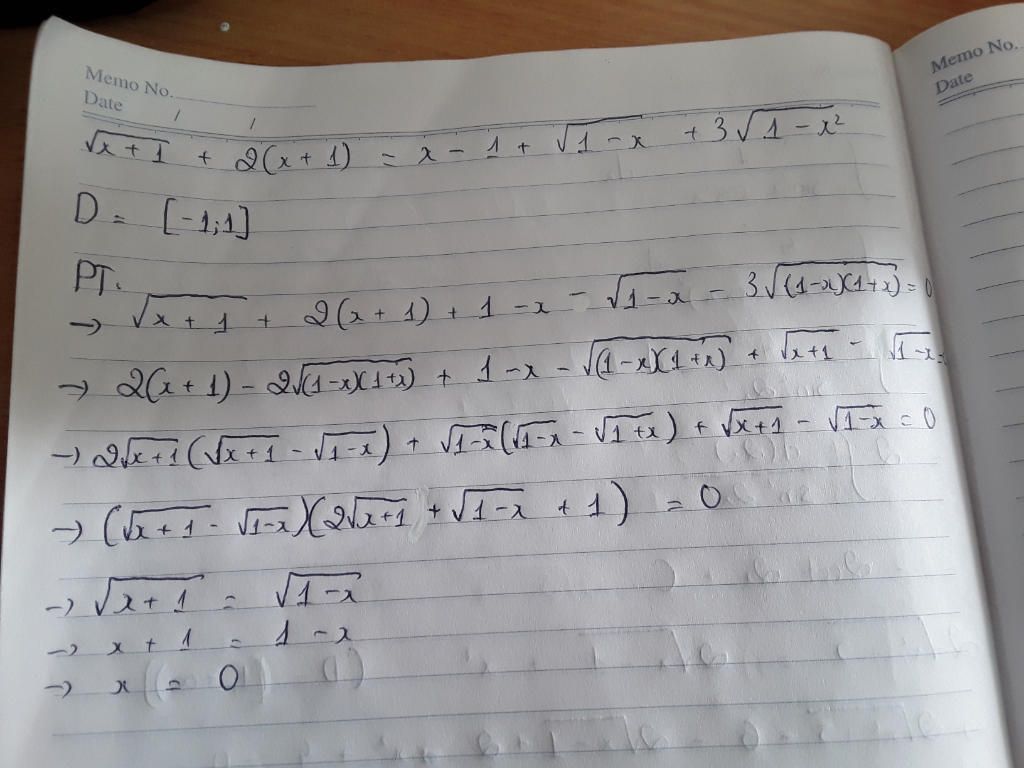 Memo No.
Date / /
Memo No.
Date
√(x+1) + 2(x+1) = x - 1 + √(1-x) + 3√(1-x²)
D = [-1;1]
PT.
→ √(x+1) + 2(x+1) + 1 - x - √(1-x) - 3√((1-x)(1+x)) = 0
→ 2(x+1) - 2√((1-x)(1+x)) + 1 - x - √((1-x)(1+x)) + √(x+1) - √(1-x) =
→ 2√(x+1)(√(x+1) - √(1-x)) + √(1-x)(√(1-x) - √(1+x)) + √(x+1) - √(1-x) = 0
→ (√(x+1) - √(1-x))(2√(x+1) + √(1-x) + 1) = 0
→ √(x+1) = √(1-x)
→ x + 1 = 1 - x
→ x = 0